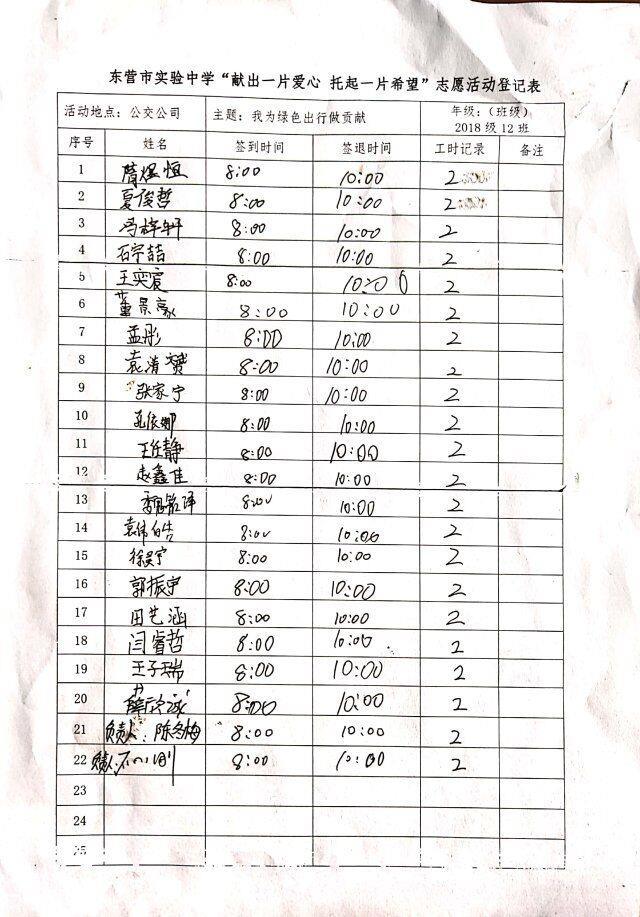 东营市实验中学“献出一片爱心 托起一片希望”志愿活动登记表
活动地点：公交公司 主题：我为绿色出行做贡献 年级：（班级）
2018级12班
序号 姓名 签到时间 签退时间 工时记录 备注
1 恒 8:00 10:00 2
2 夏俊哲 8:00 10:00 2
3 冯梓轩 8:00 10:00 2
4 石宇喆 8:00 10:00 2
5 王奕宸 8:00 10:00 2
6 董景豪 8:00 10:00 2
7 孟彤 8:00 10:00 2
8 袁清赟 8:00 10:00 2
9 张家宁 8:00 10:00 2
10 孔依娜 8:00 10:00 2
11 王任静 8:00 10:00 2
12 赵鑫佳 8:00 10:00 2
13 8:00 10:00 2
14 袁伟皓 8:00 10:00 2
15 徐昊宇 8:00 10:00 2
16 郭振宇 8:00 10:00 2
17 田艺涵 8:00 10:00 2
18 闫睿哲 8:00 10:00 2
19 王子瑞 8:00 10:00 2
20 薛 诚 8:00 10:00 2
21 负责人：陈冬梅 8:00 10:00 2
22 负责人： 8:00 10:00 2
23
24
25